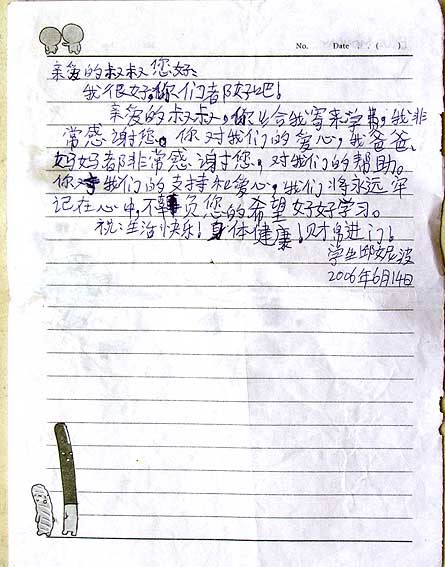 No. Date . ( )
亲爱的叔叔您好:
我很好,你们都好吧!
亲爱的叔叔,你给我寄来学费,我非
常感谢您。你对我们的爱心,我爸爸、
妈妈都非常感谢您,对我们的帮助。
你对我们的支持和爱心,我们将永远牢
记在心中,不辜负您的希望好好学习。
祝:生活快乐!身体健康!财常进门!
学生邱妮波
2006年6月14日